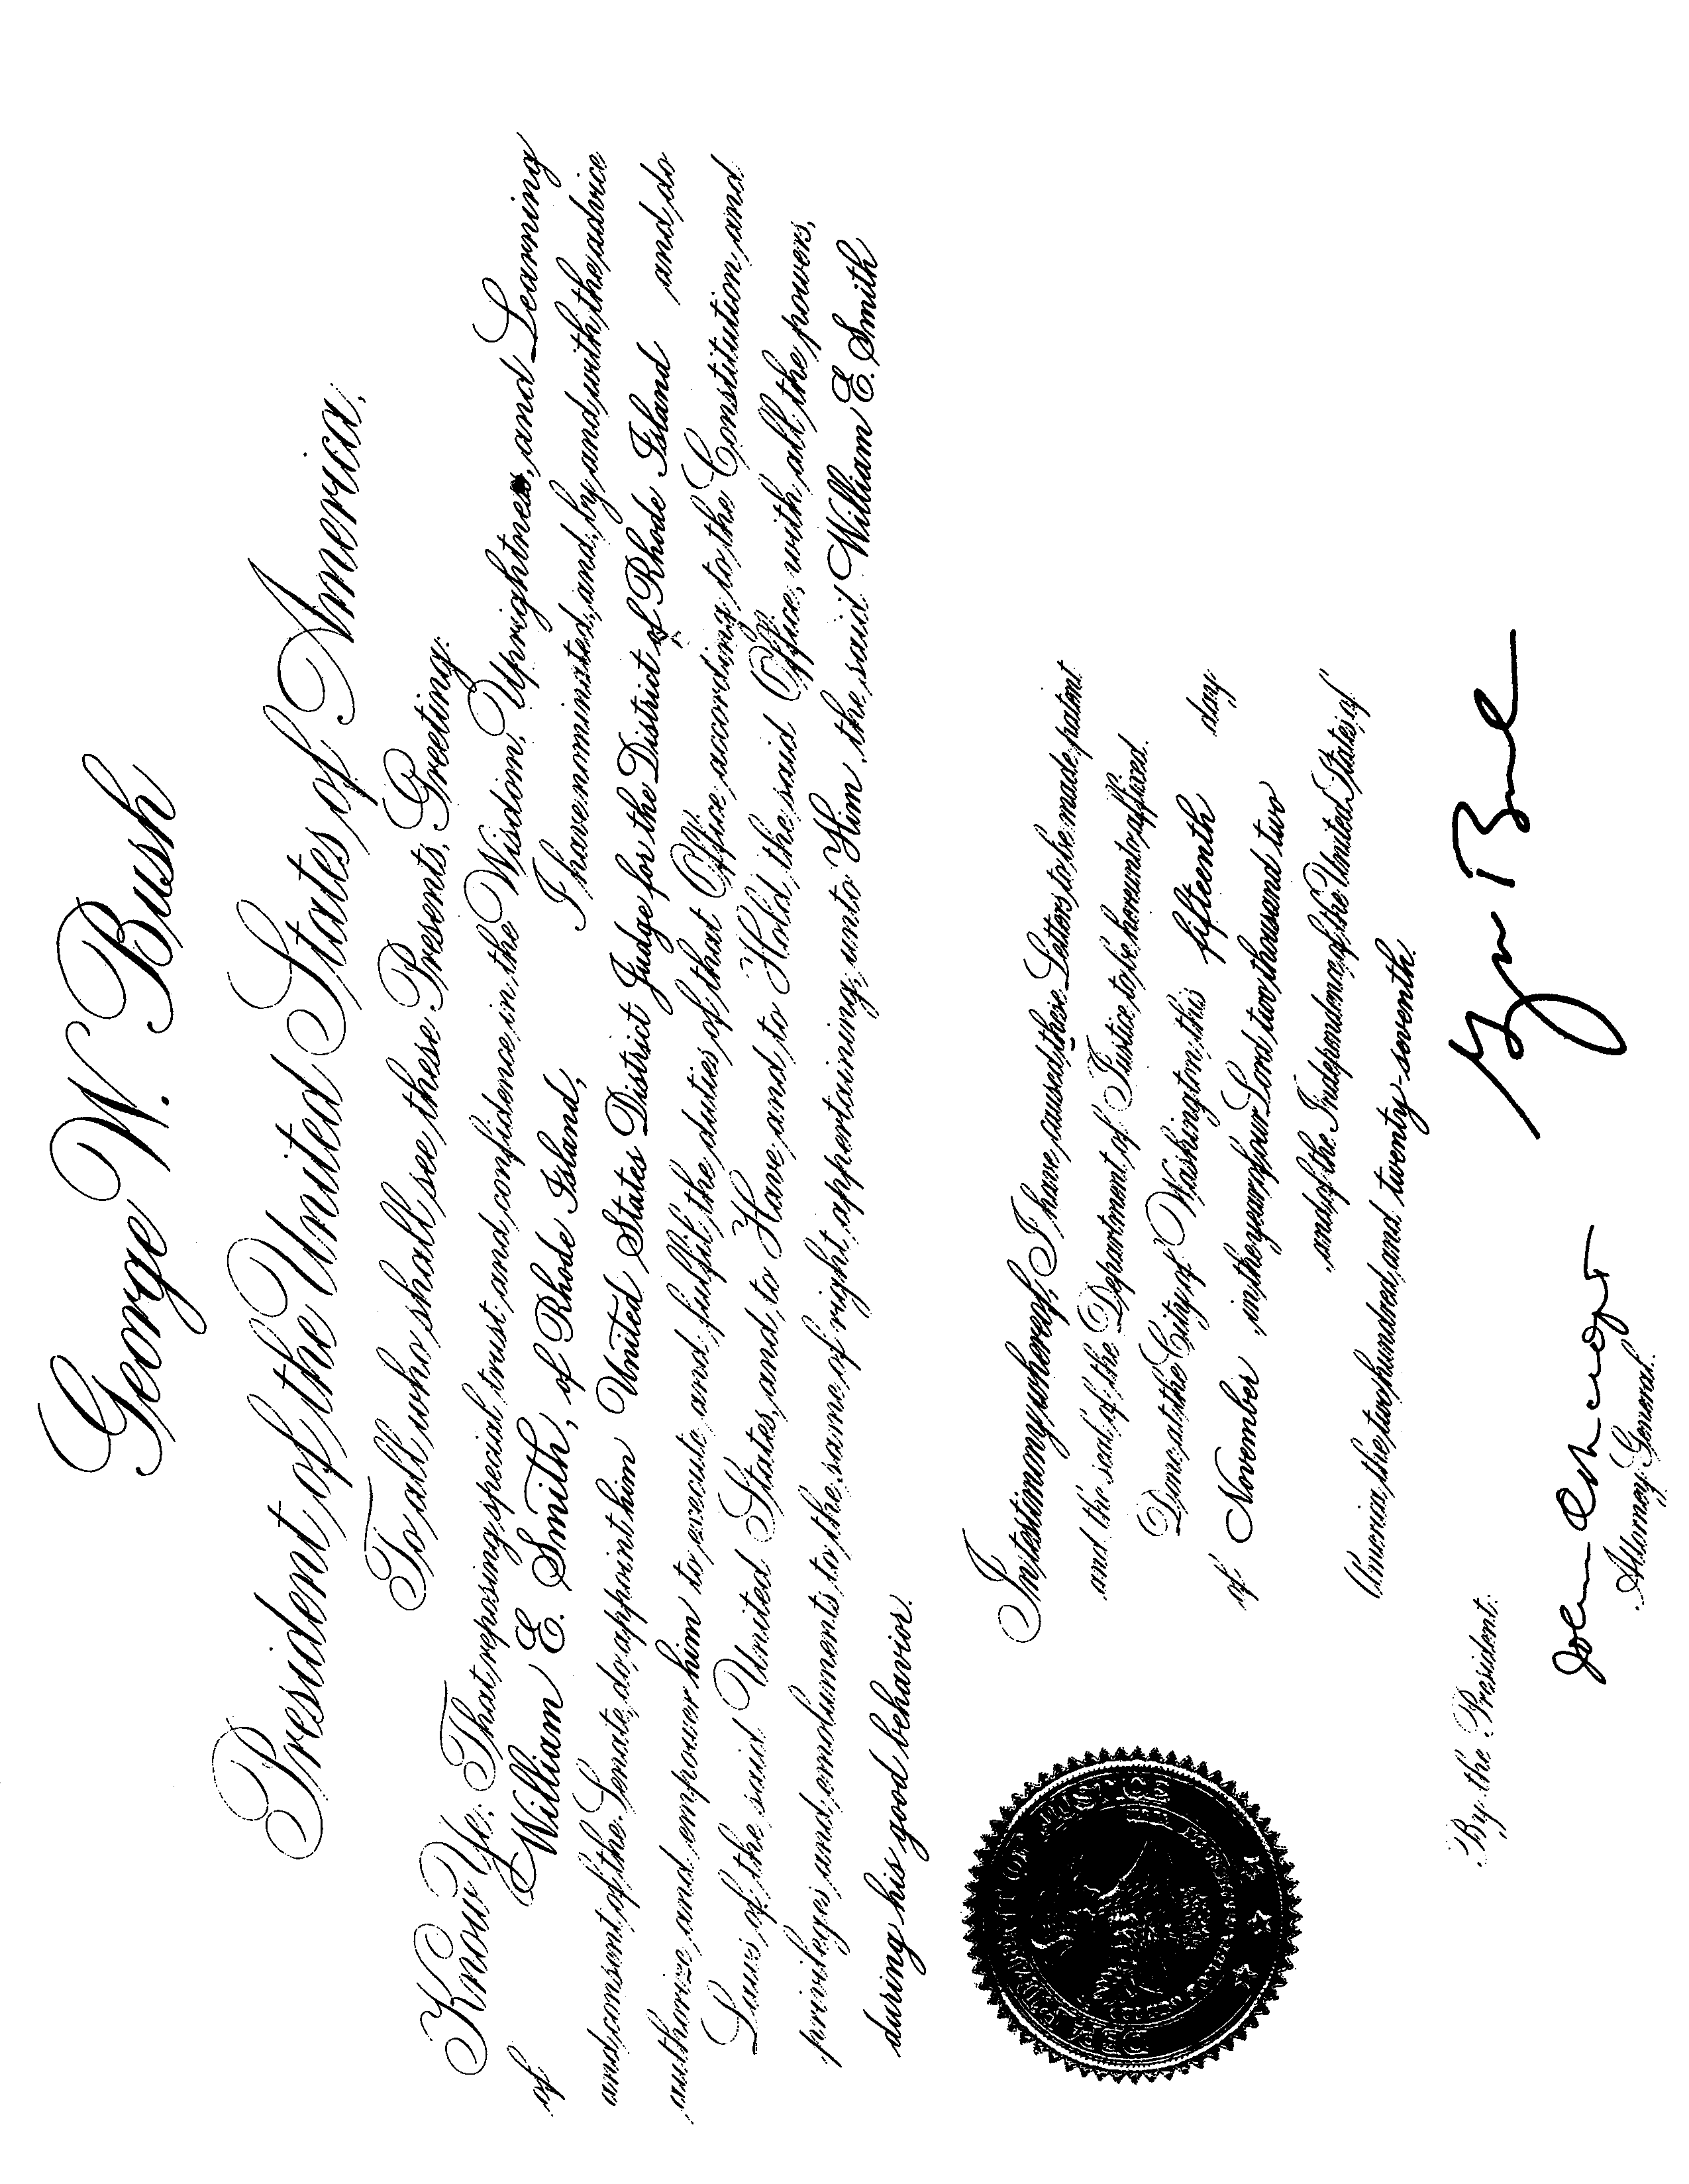 George W. Bush
President of the United States of America,
To all who shall see these Presents, Greeting:
Know Ye; That reposing special trust and confidence in the Wisdom, Uprightness, and Learning
of William E. Smith, of Rhode Island, I have nominated, and, by and with the advice
and consent of the Senate, do appoint him United States District Judge for the District of Rhode Island and do
authorize and empower him to execute and fulfil the duties of that Office according to the Constitution and
Laws of the said United States, and to Have and to Hold the said Office, with all the powers,
privileges and emoluments to the same of right appertaining, unto Him, the said William E. Smith
during his good behavior.
In testimony whereof, I have caused these Letters to be made patent
and the seal of the Department of Justice to be hereunto affixed.
Done at the City of Washington, this fifteenth day
of November in the year of our Lord two thousand two
and of the Independence of the United States of
America the two hundred and twenty-seventh.
DEPARTMENT OF JUSTICE
By the President:
John Ashcroft
Attorney General.